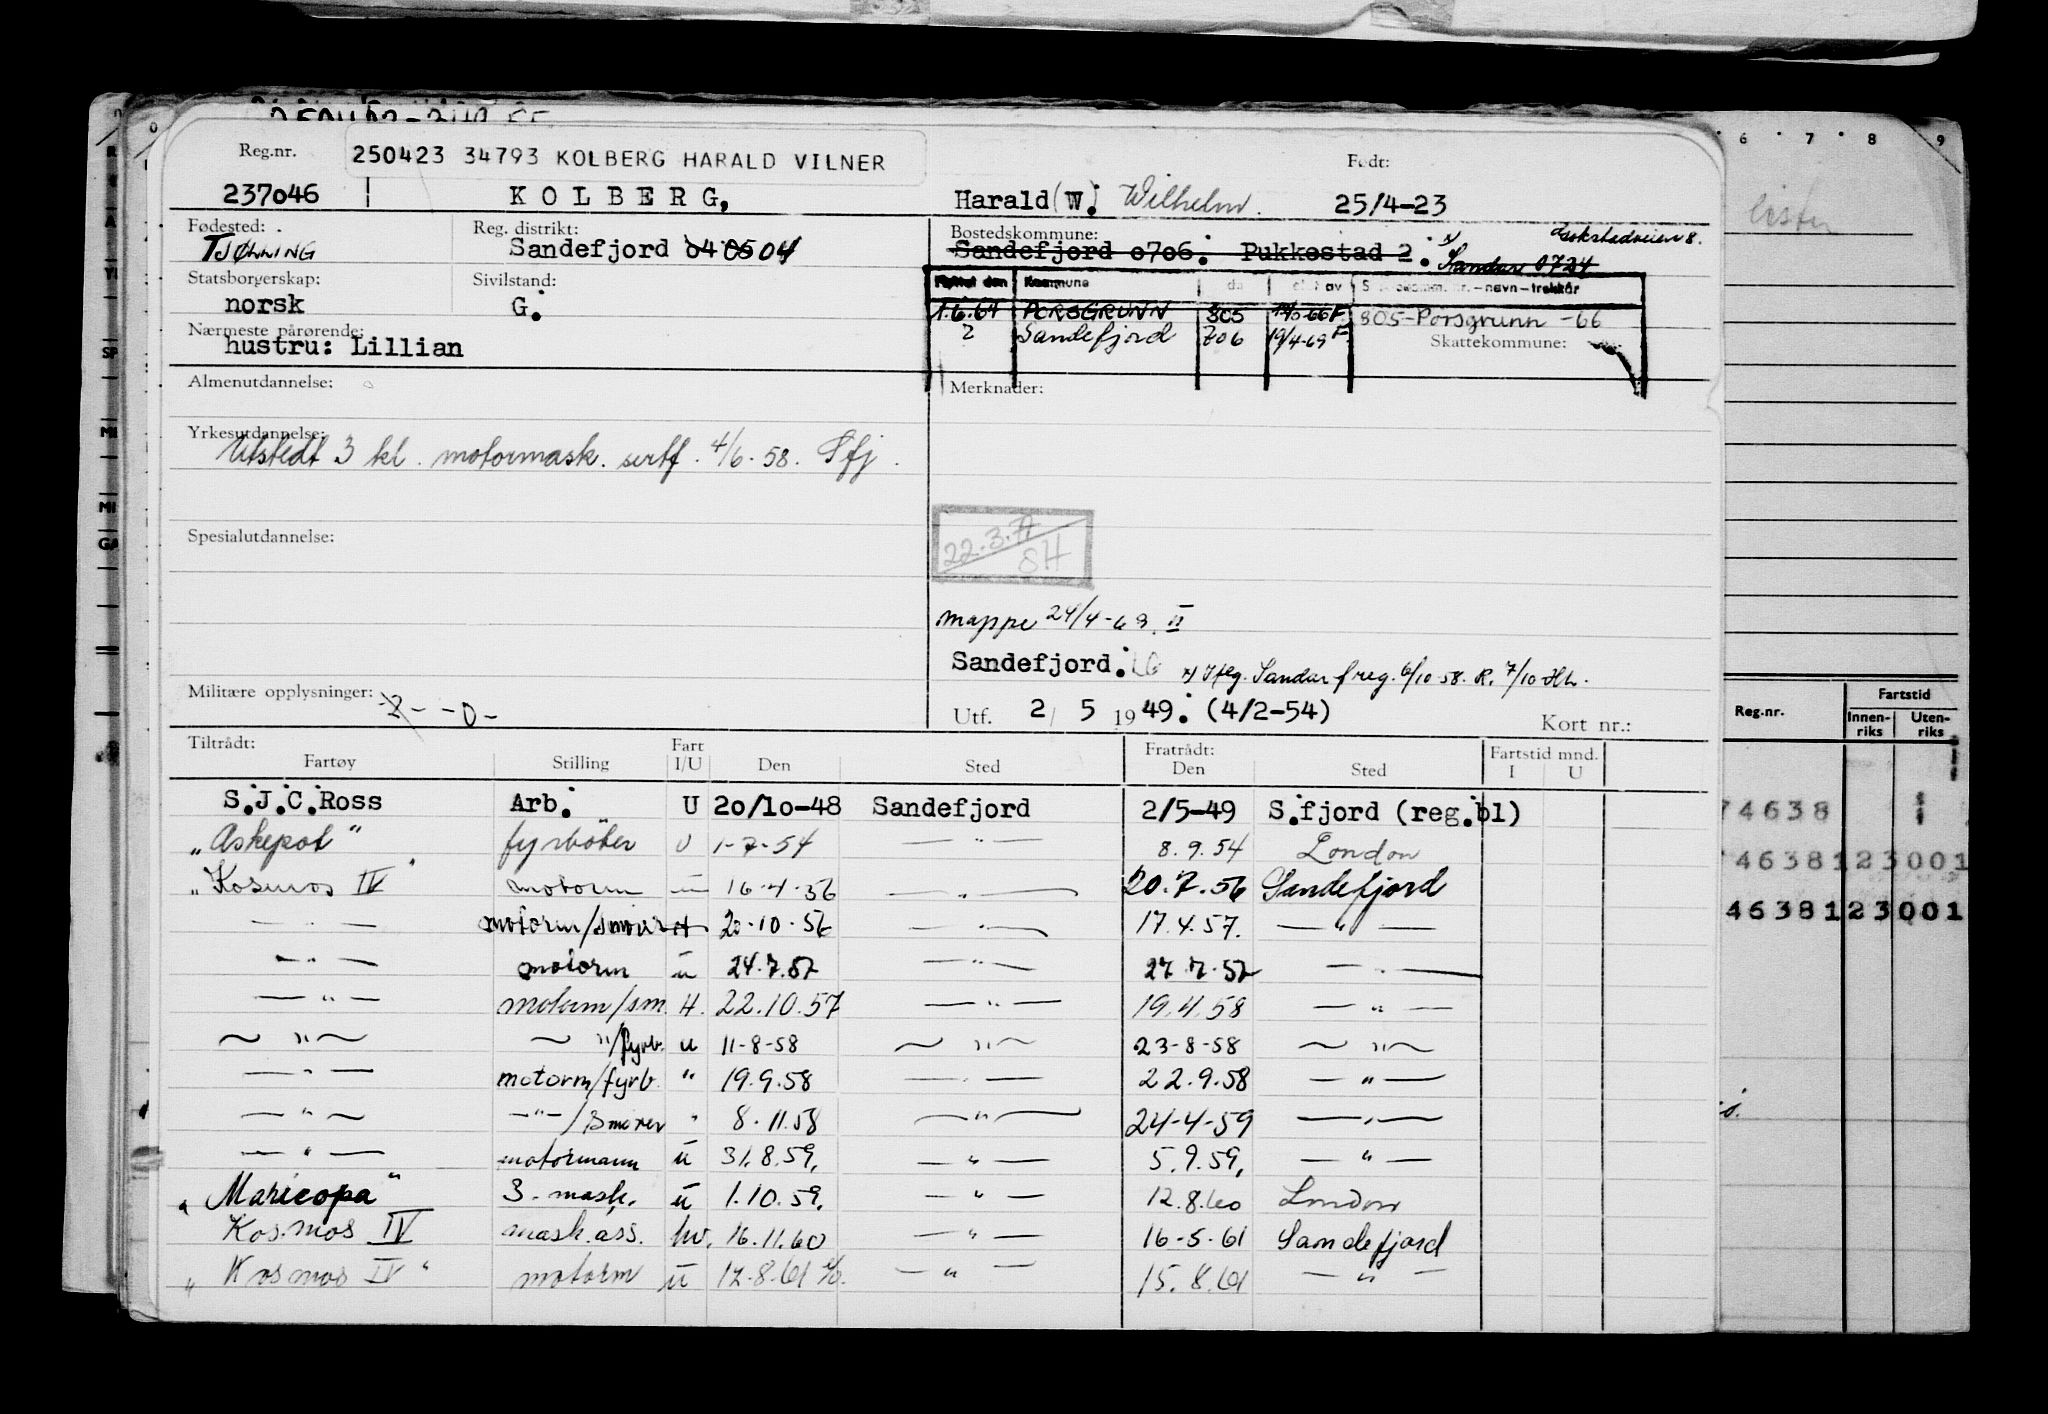 Reg.nr. 250423 34793 KOLBERG HARALD VILNER Født:
237046 KOLBERG, Harald (W). Wilhelm. 25/4-23
Fødested: Reg. distrikt: Bostedskommune:
TJØLLING Sandefjord 04 05 04 Sandefjord 0706. Pukkestad 2. x) Sandar 0724
Statsborgerskap: Sivilstand: Flyttet den Kommune av -navn-trekkår
norsk G. 1.6.64 PORSGRUNN 805 805-Porsgrunn -66
Nærmeste pårørende: 2 Sandefjord 706 19/4-69 F. Skattekommune:
hustru: Lillian
Almenutdannelse: Merknader:
Yrkesutdannelse:
Utstedt 3 kl. motormask. sertf. 4/6-58. Sfj.
Spesialutdannelse: 22.3.77
SH
mappe 24/4-69. II
Sandefjord. x) Iflg. Sandar freg. 6/10 58. R. 7/10 HL.
Militære opplysninger: -2- -0-
Utf. 2/ 5 1949. (4/2-54) Kort nr.:
Tiltrådt: Fart Fratrådt: Fartstid mnd.
Fartøy Stilling I/U Den Sted Den Sted I U
S.J.C.Ross Arb. U 20/10-48 Sandefjord 2/5-49 S.fjord (reg.bl)
„Askepot" fyrbøter U 1-7-54 — " — 8.9.54 London
„Kosmos IV" motorm — 16-4-56 — " — 20.7.56 Sandefjord
— " — motorm/smører H 20-10-56 — " — 17.4.57. — " —
— " — motorm u 24.7.57 — " — 27.7.57 — " —
— " — motorm/sm. H. 22.10.57 — " — 19.4.58 — " —
— " — — "/fyrb. u 11-8-58 — " — 23-8-58 — " —
— " — motorm/fyrb. " 19.9.58 — " — 22.9.58 — " —
— " — —"—/smører " 8.11.58 — " — 24-4-59 — " —
— " — motormann u 31.8.59. — " — 5.9.59. — " —
„Maricopa" 3. mask. u 1.10.59. — " — 12.8.60 London
Kosmos IV mask.ass. hv. 16.11.60 — " — 16-5-61 Sandefjord
„Kosmos IV" motorm u 12.8.61 — " — 15.8.61 — " —
6 7 8 9
Fartstid
Reg.nr. Innen-riks Uten-riks
74638
74638123001
4638123001